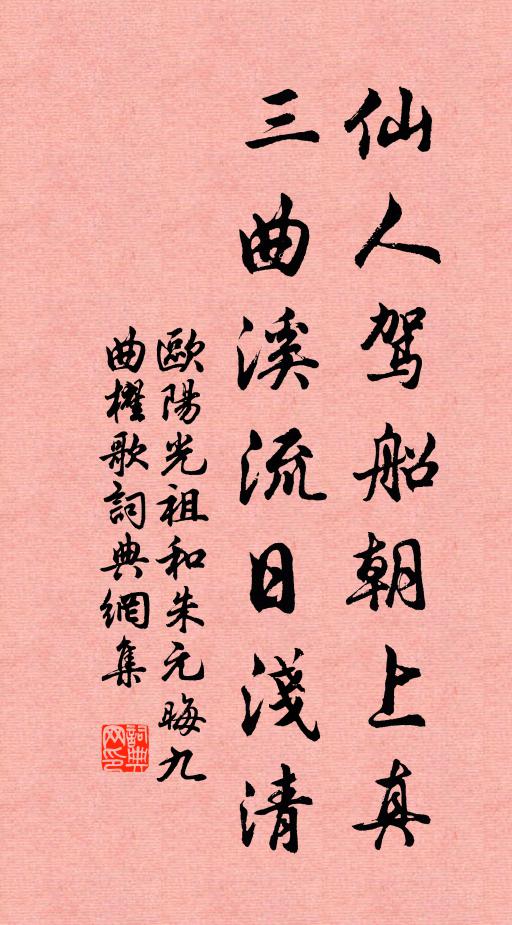 仙人駕船朝上真
三曲溪流日淺清
歐陽光祖和朱元晦九
曲櫂歌詞典網集
詞典
网印